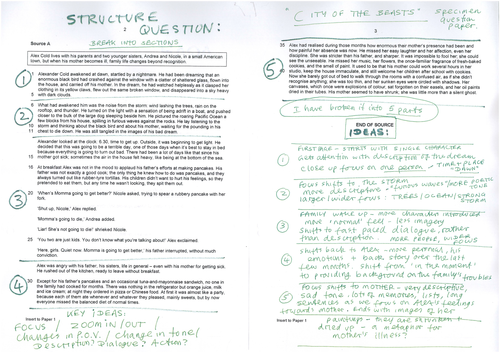 STRUCTURE
QUESTION:
2
Source A
BREAK INTO SECTIONS
Alex Cold lives with his parents and two younger sisters, Andrea and Nicole, in a small American
town, but when his mother becomes ill, family life changes beyond recognition.
1
Alexander Cold awakened at dawn, startled by a nightmare. He had been dreaming that an
enormous black bird had crashed against the window with a clatter of shattered glass, flown into
the house, and carried off his mother. In the dream, he had watched helplessly as it clasped her
clothing in its yellow claws, flew out the same broken window, and disappeared into a sky heavy
5 with dark clouds.
2
What had awakened him was the noise from the storm: wind lashing the trees, rain on the
rooftop, and thunder. He turned on the light with a sensation of being adrift in a boat, and pushed
closer to the bulk of the large dog sleeping beside him. He pictured the roaring Pacific Ocean a
few blocks from his house, spilling in furious waves against the rocks. He lay listening to the
10 storm and thinking about the black bird and about his mother, waiting for the pounding in his
chest to die down. He was still tangled in the images of his bad dream.
3
Alexander looked at the clock: 6.30, time to get up. Outside, it was beginning to get light. He
decided that this was going to be a terrible day, one of those days when it's best to stay in bed
because everything is going to turn out badly. There had been a lot of days like that since his
15 mother got sick; sometimes the air in the house felt heavy, like being at the bottom of the sea.
At breakfast Alex was not in the mood to applaud his father's efforts at making pancakes. His
father was not exactly a good cook; the only thing he knew how to do was pancakes, and they
always turned out like rubber-tyre tortillas. His children didn't want to hurt his feelings, so they
pretended to eat them, but any time he wasn't looking, they spit them out.
20 'When's Momma going to get better?' Nicole asked, trying to spear a rubbery pancake with her
fork.
'Shut up, Nicole,' Alex replied.
'Momma's going to die,' Andrea added.
'Liar! She's not going to die!' shrieked Nicole.
25 'You two are just kids. You don't know what you're talking about!' Alex exclaimed.
'Here, girls. Quiet now. Momma is going to get better,' his father interrupted, without much
conviction.
4
Alex was angry with his father, his sisters, life in general – even with his mother for getting sick.
He rushed out of the kitchen, ready to leave without breakfast.
30 Except for his father's pancakes and an occasional tuna-and-mayonnaise sandwich, no one in
the family had cooked for months. There was nothing in the refrigerator but orange juice, milk
and ice cream; at night they ordered in pizza or Chinese food. At first it was almost like a party,
because each of them ate whenever and whatever they pleased, mainly sweets, but by now
everyone missed the balanced diet of normal times.
Insert to Paper 1
KEY IDEAS:
FOCUS / ZOOM IN/OUT
changes in P.O.V. / change in tone /
Description? Dialogue? Action?
"CITY OF THE BEASTS"
specimen
question
paper
3
5
35 Alex had realised during those months how enormous their mother's presence had been and
how painful her absence was now. He missed her easy laughter and her affection, even her
discipline. She was stricter than his father, and sharper. It was impossible to fool her: she could
see the unseeable. He missed her music, her flowers, the once-familiar fragrance of fresh-baked
cookies, and the smell of paint. It used to be that his mother could work several hours in her
40 studio, keep the house immaculate, and still welcome her children after school with cookies.
Now she barely got out of bed to walk through the rooms with a confused air, as if she didn't
recognise anything; she was too thin, and her sunken eyes were circled with shadows. Her
canvases, which once were explosions of colour, sat forgotten on their easels, and her oil paints
dried in their tubes. His mother seemed to have shrunk; she was little more than a silent ghost.
I have broken it into 5 parts
END OF SOURCE
IDEAS:
1 FIRSTLINE – STARTS WITH SINGLE CHARACTER
Gets attention with description of the dream
close up focus on one person – TIME + PLACE
"DAWN"
2 FOCUS shifts to THE STORM
more descriptive "furious waves"
larger/wider focus: TREES/OCEAN/STRONG
STORM
3 FAMILY wake up – more characters introduced
more 'normal' feel – less imagery
shift to fast paced dialogue, rather
than description – more people, wider FOCUS
4 shift back to Alex – more personal, his
emotions + back story over the last
few months. shift from 'in the moment'
to providing background on the family's troubles
5 FOCUS shifts to mother – very descriptive,
sad tone, lots of memories, lists, long
sentences as we focus on Alex's feelings
toward mother, ends with images of her
paintings – they are shrunken +
dried up – a metaphor for
mother's illness?
Insert to Paper 1